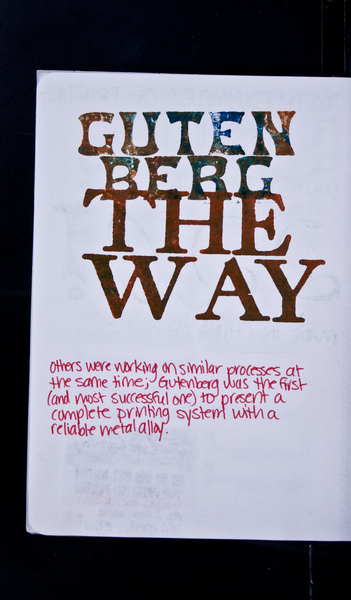 GUTEN
BERG
THE
WAY
Others were working on similar processes at
the same time; Gutenberg was the first
(and most successful one) to present a
complete printing system with a
reliable metal alloy.